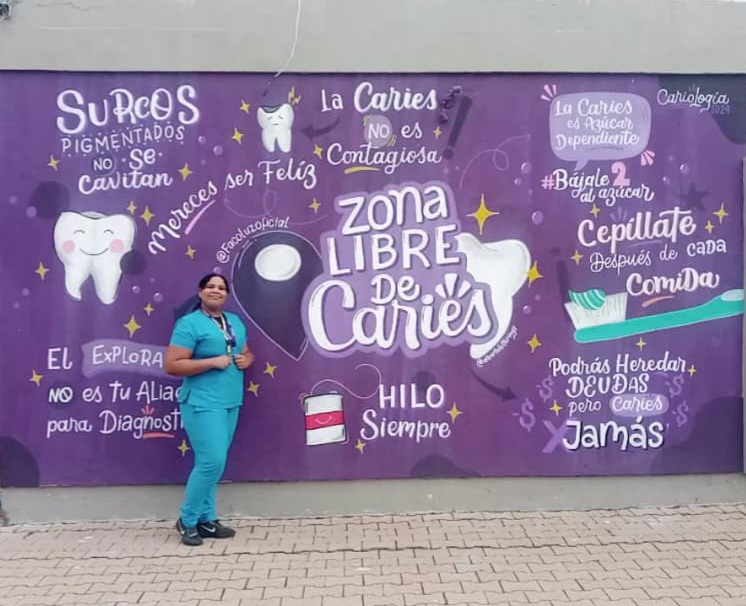 SURCOS
PIGMENTADOS
NO SE
CAVITAN
Mereces ser Felíz
La Caries
NO es
Contagiosa
La Caries
es Azúcar
Dependiente
#Bájale 2
al azúcar
Cariología
2024
@Facoluzoficial
ZONA
LIBRE
DE
Caries
Cepíllate
Después de cada
Comida
El EXPLORA
NO es tu Alia
para Diagnost
HILO
Siempre
Podrás Heredar
DEUDAS
pero Caries
Jamás